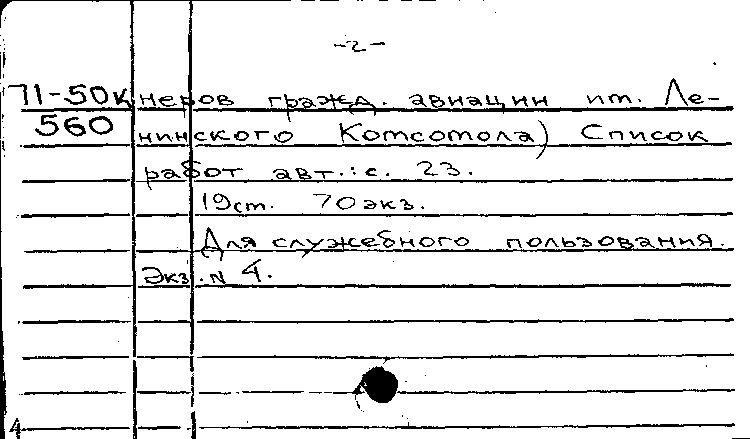 -2-
71-50к неров гражд. авиации им. Ле-
560 нинского Комсомола) Список
работ авт.: с. 23.
19 см. 70 экз.
Для служебного пользования.
Экз. N 4.
4